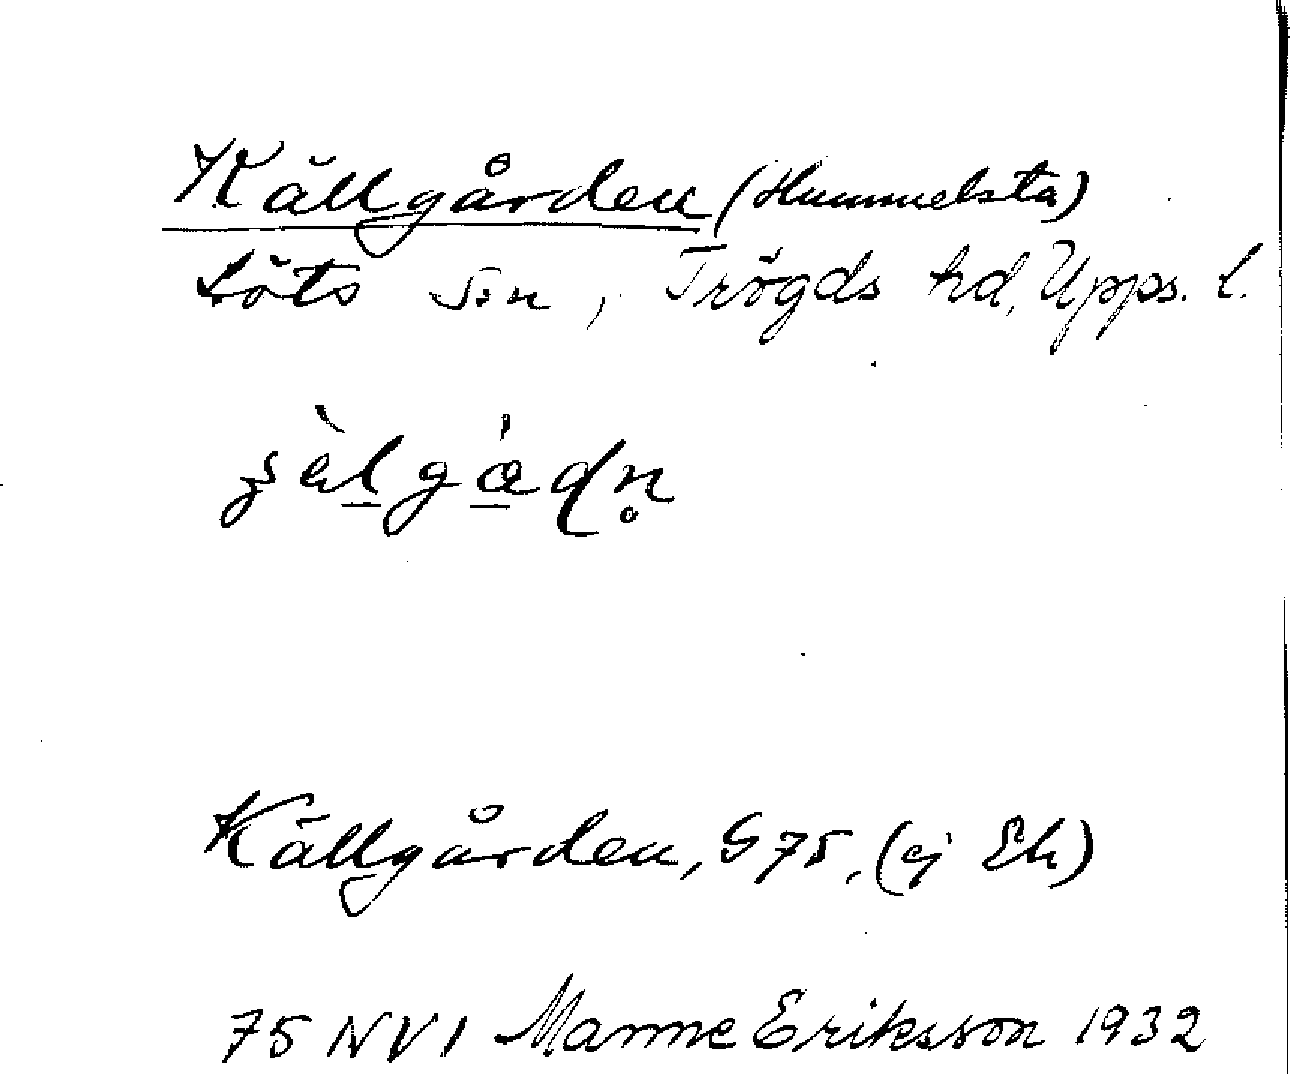 Källgården (Hummelsta)
Löts sn, Trögds hd, Upps. l.
Källgården, G 75, (ej Ek)
75 NV 1 Manne Eriksson 1932